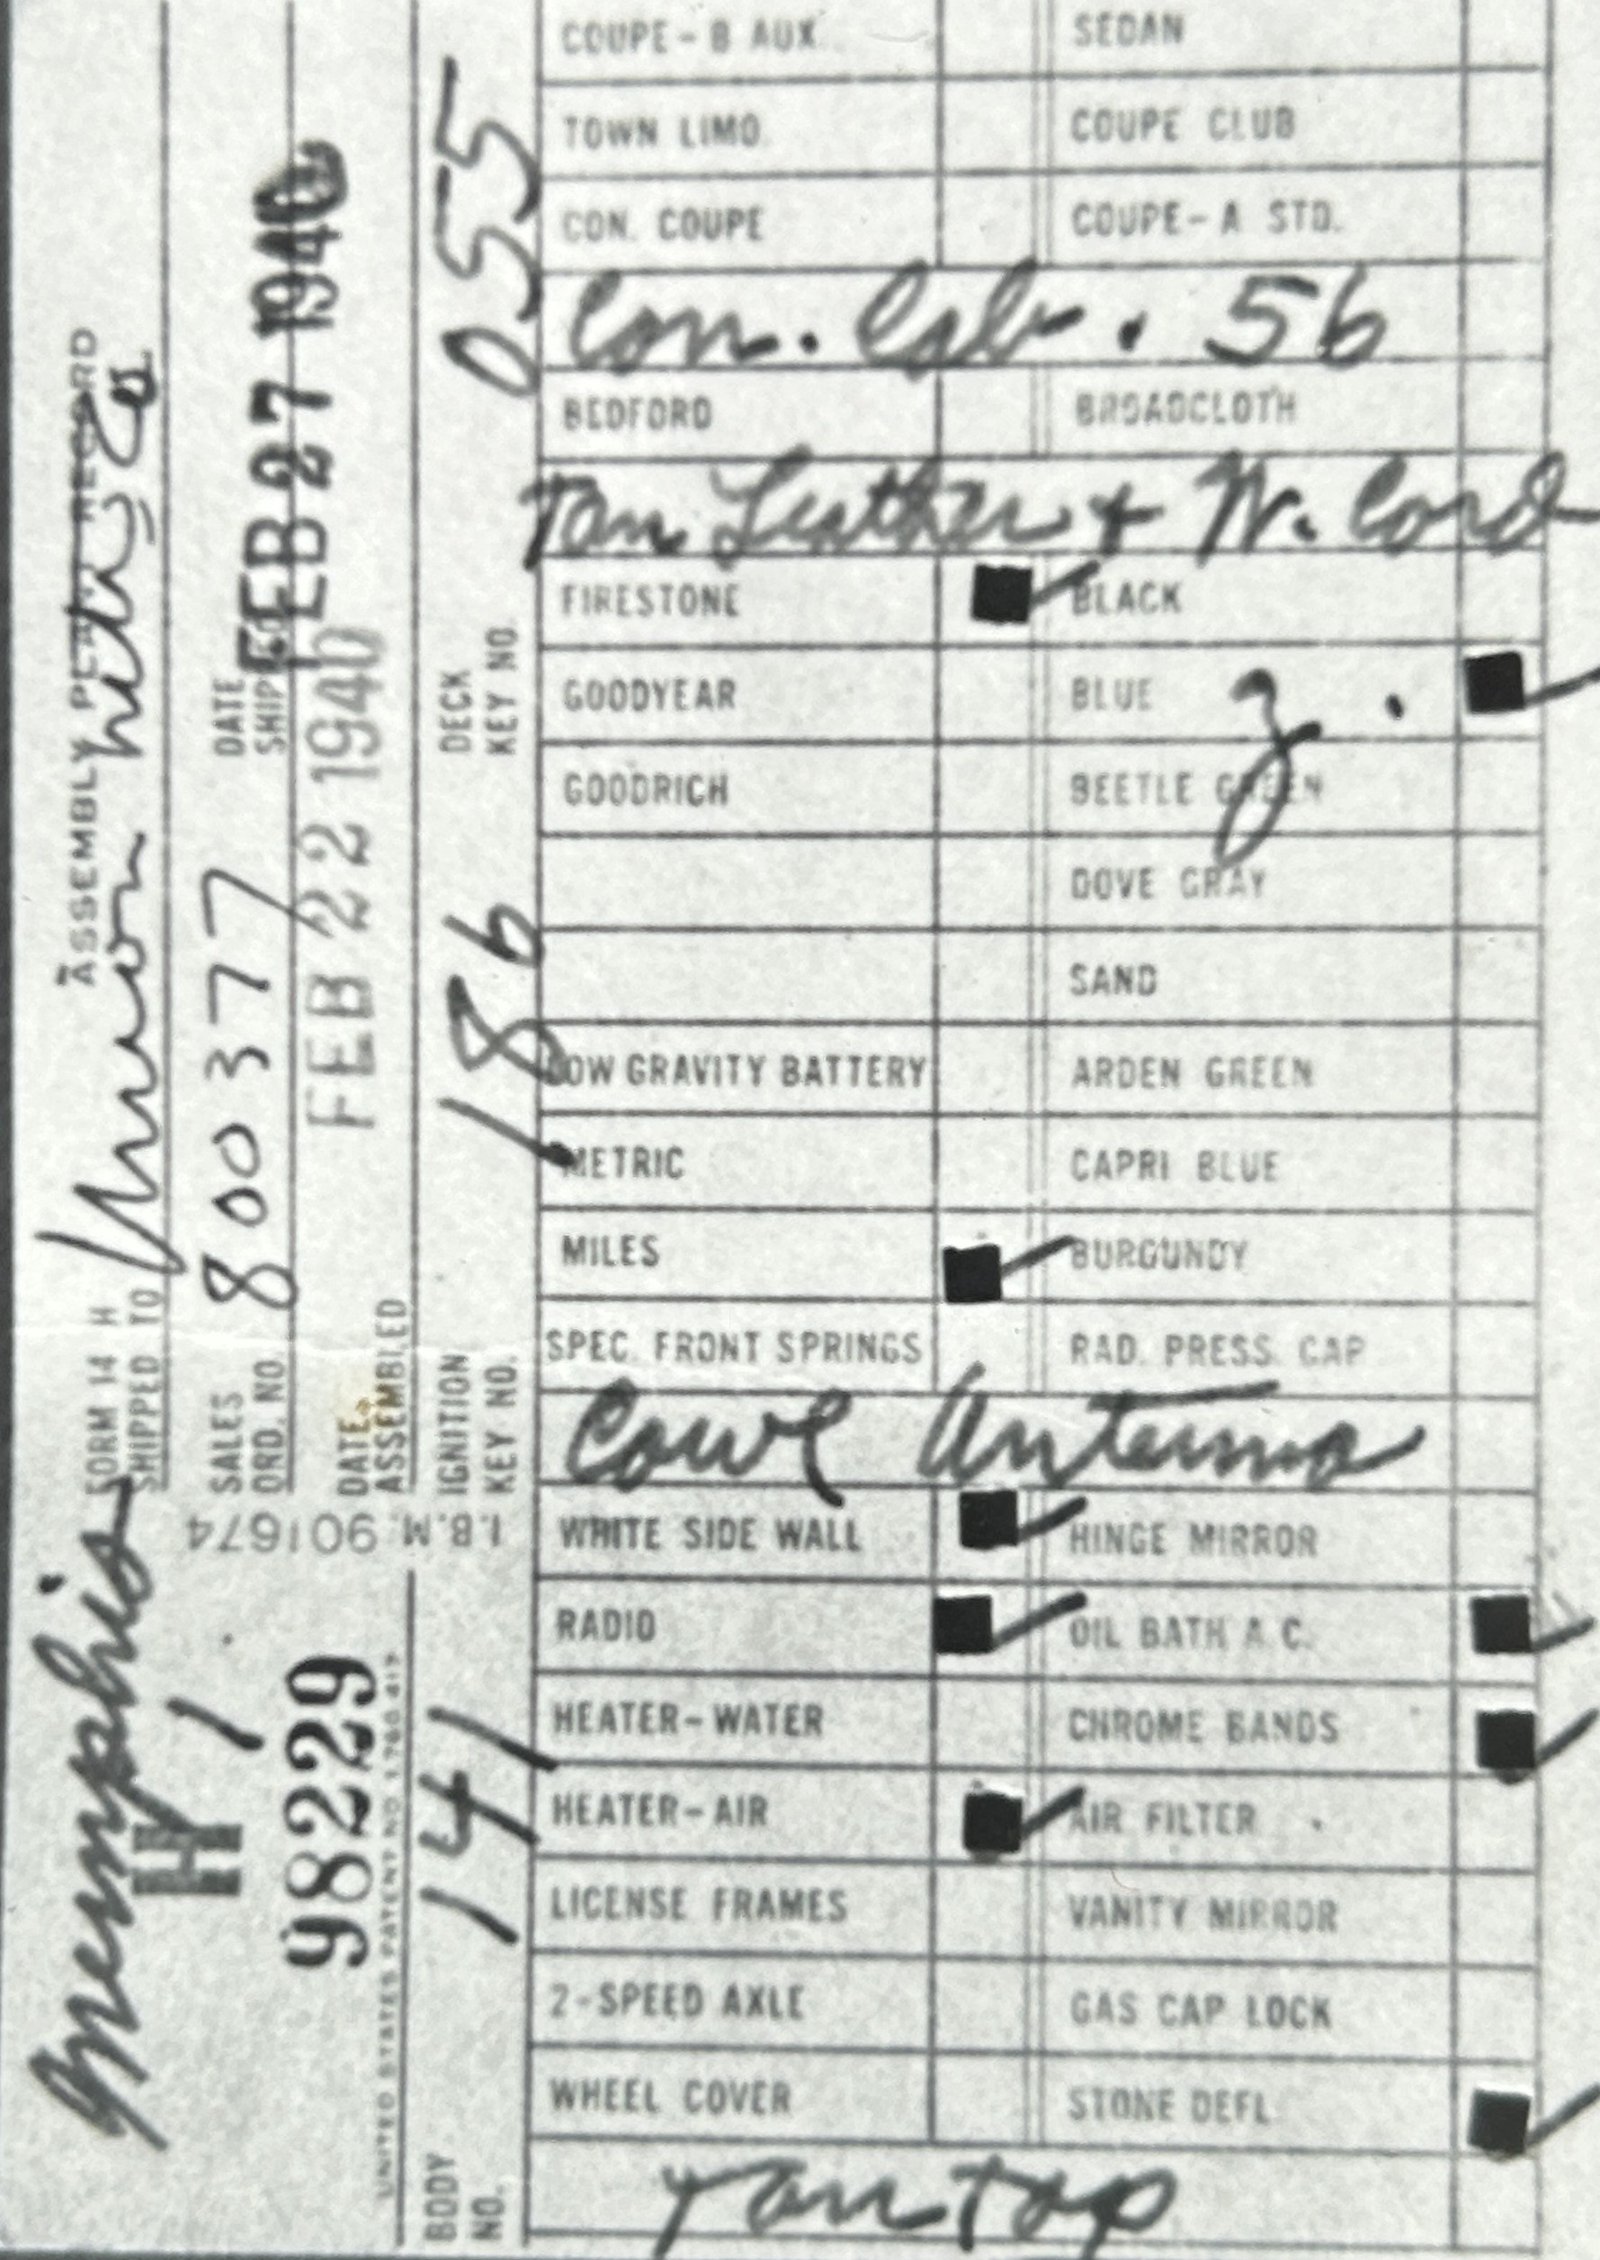 FORM 14 H
ASSEMBLY PLANT RECORD
SHIPPED TO
Memphis
H 1
98229
UNITED STATES PATENT NO. 1780417
I.B.M. 901674
SALES ORD. NO. 800377
DATE SHIPPED FEB 27 1940
DATE ASSEMBLED FEB 22 1940
BODY NO. 141
IGNITION KEY NO. 186
DECK KEY NO. 055
COUPE-B AUX. SEDAN
TOWN LIMO. COUPE CLUB
CON. COUPE COUPE-A STD.
Con. Cab. 56
BEDFORD BROADCLOTH
Tan Leather + W. Cord
FIRESTONE BLACK
GOODYEAR BLUE
GOODRICH BEETLE GREEN
DOVE GRAY
SAND
LOW GRAVITY BATTERY ARDEN GREEN
METRIC CAPRI BLUE
MILES BURGUNDY
SPEC. FRONT SPRINGS RAD. PRESS. CAP
Cowl Antenna
WHITE SIDE WALL HINGE MIRROR
RADIO OIL BATH A.C.
HEATER-WATER CHROME BANDS
HEATER-AIR AIR FILTER
LICENSE FRAMES VANITY MIRROR
2-SPEED AXLE GAS CAP LOCK
WHEEL COVER STONE DEFL.
Tan top